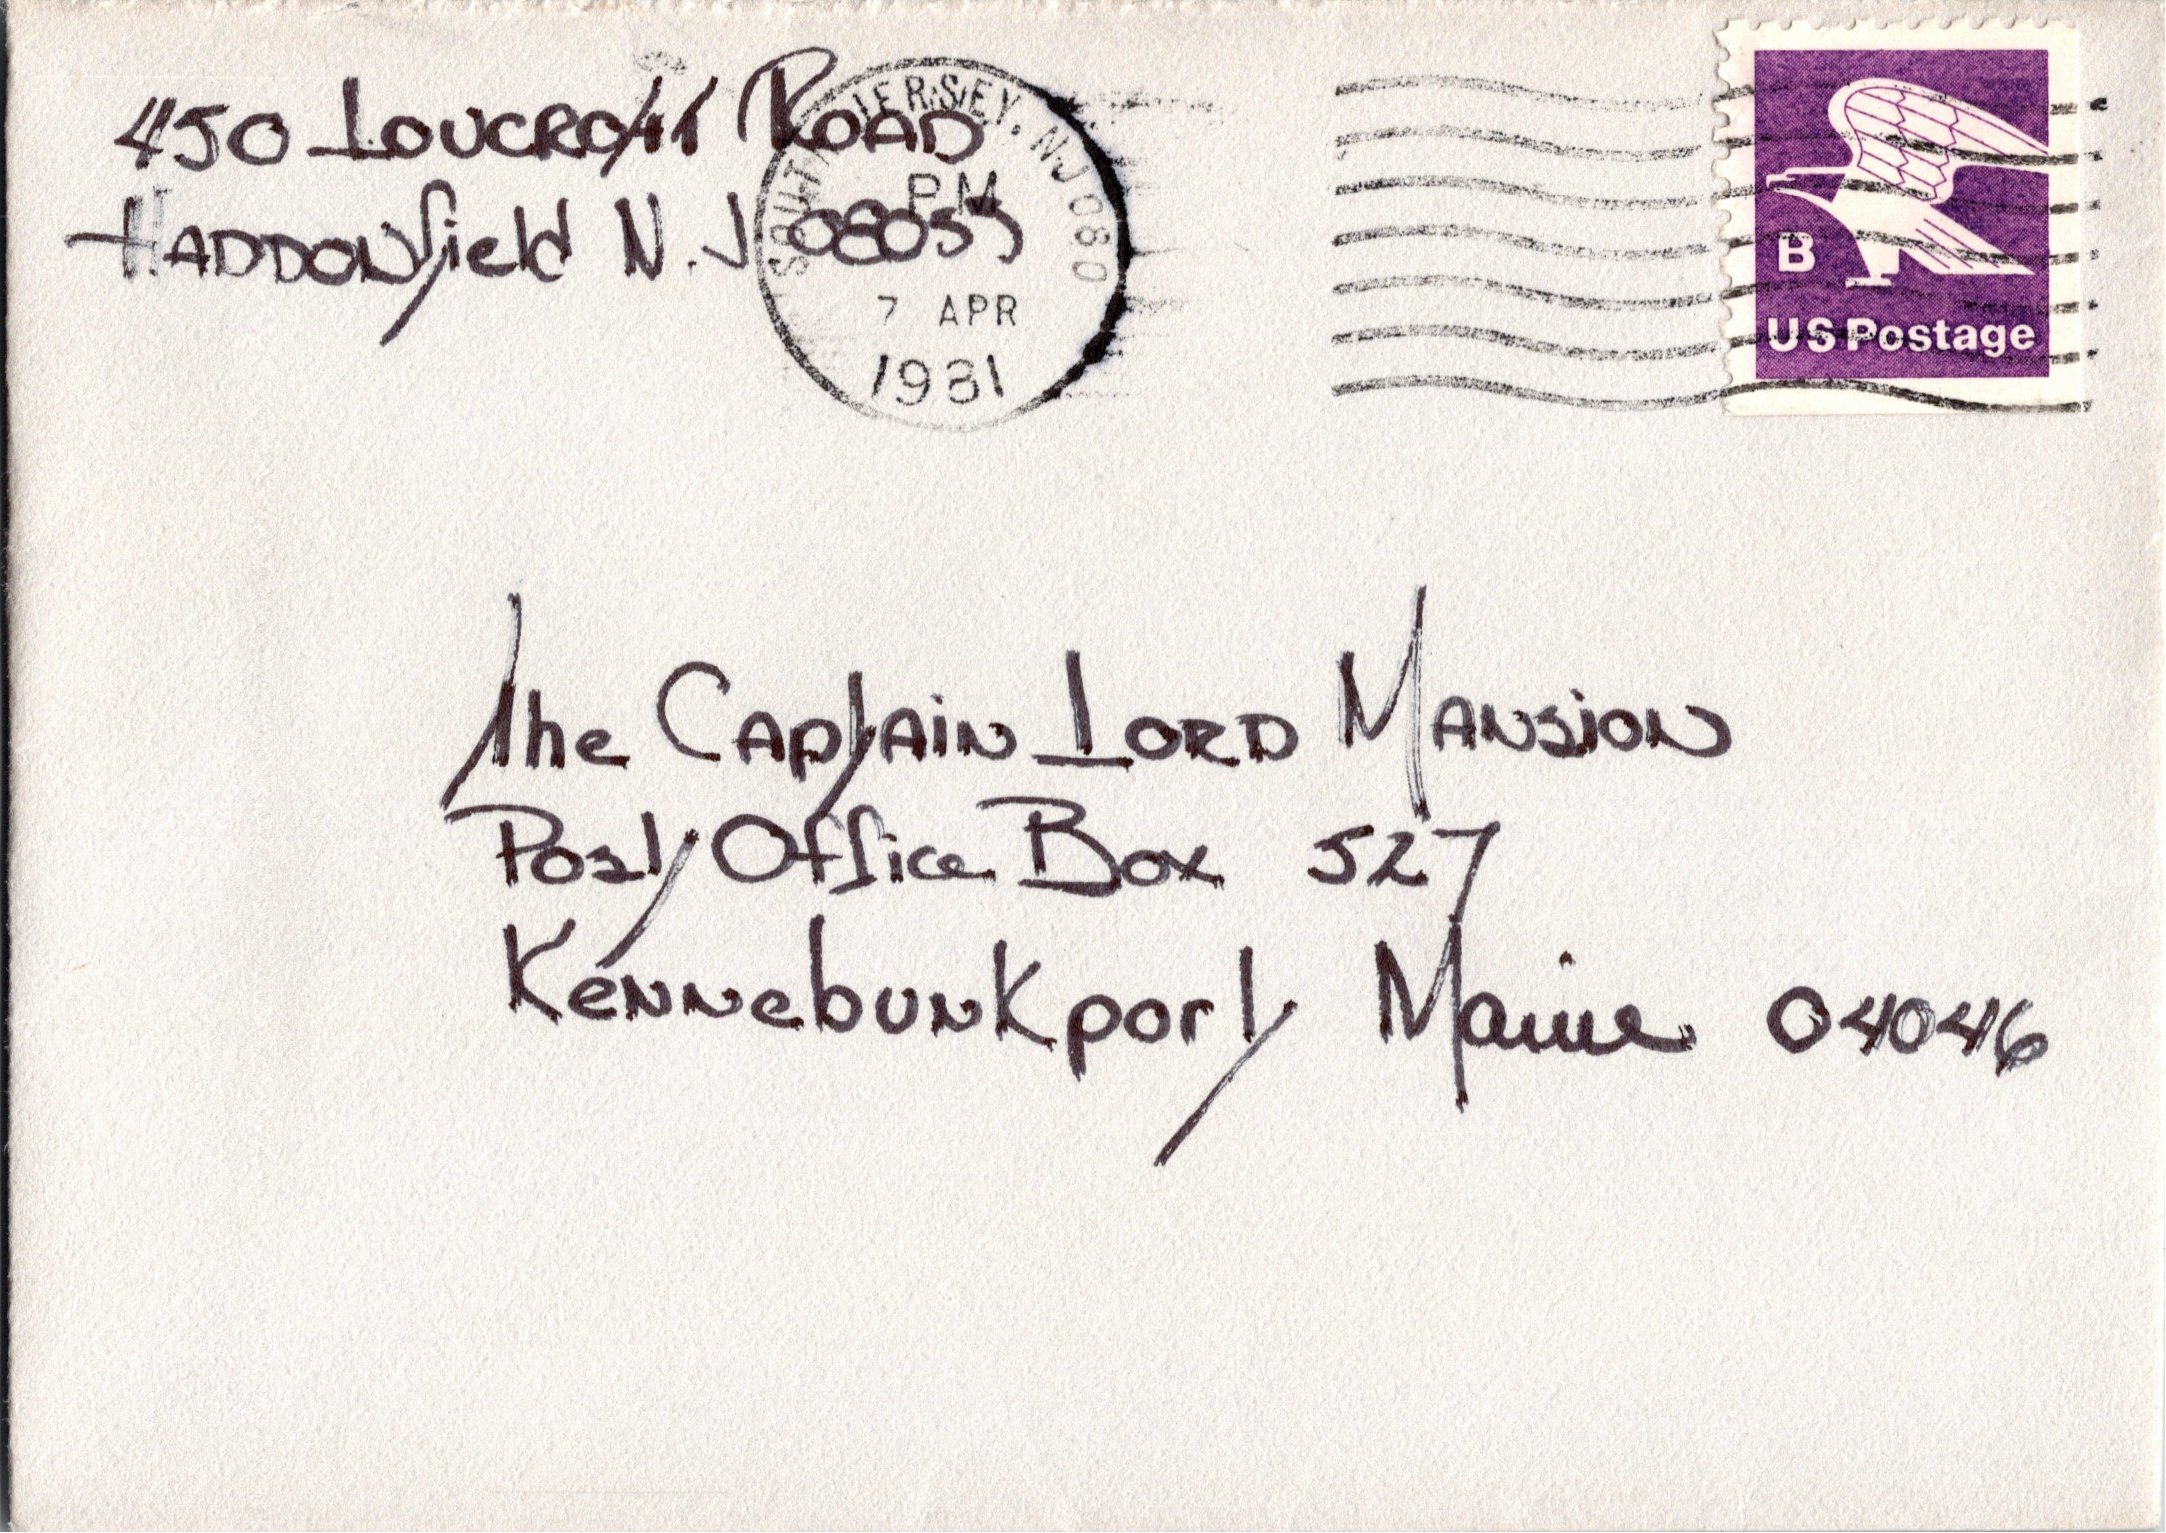 450 Loucroft Road
Haddonfield N.J 08033
SOUTH JERSEY, NJ 080
PM
7 APR
1981
B
US Postage
The Captain Lord Mansion
Post Office Box 527
Kennebunkport Maine 04046